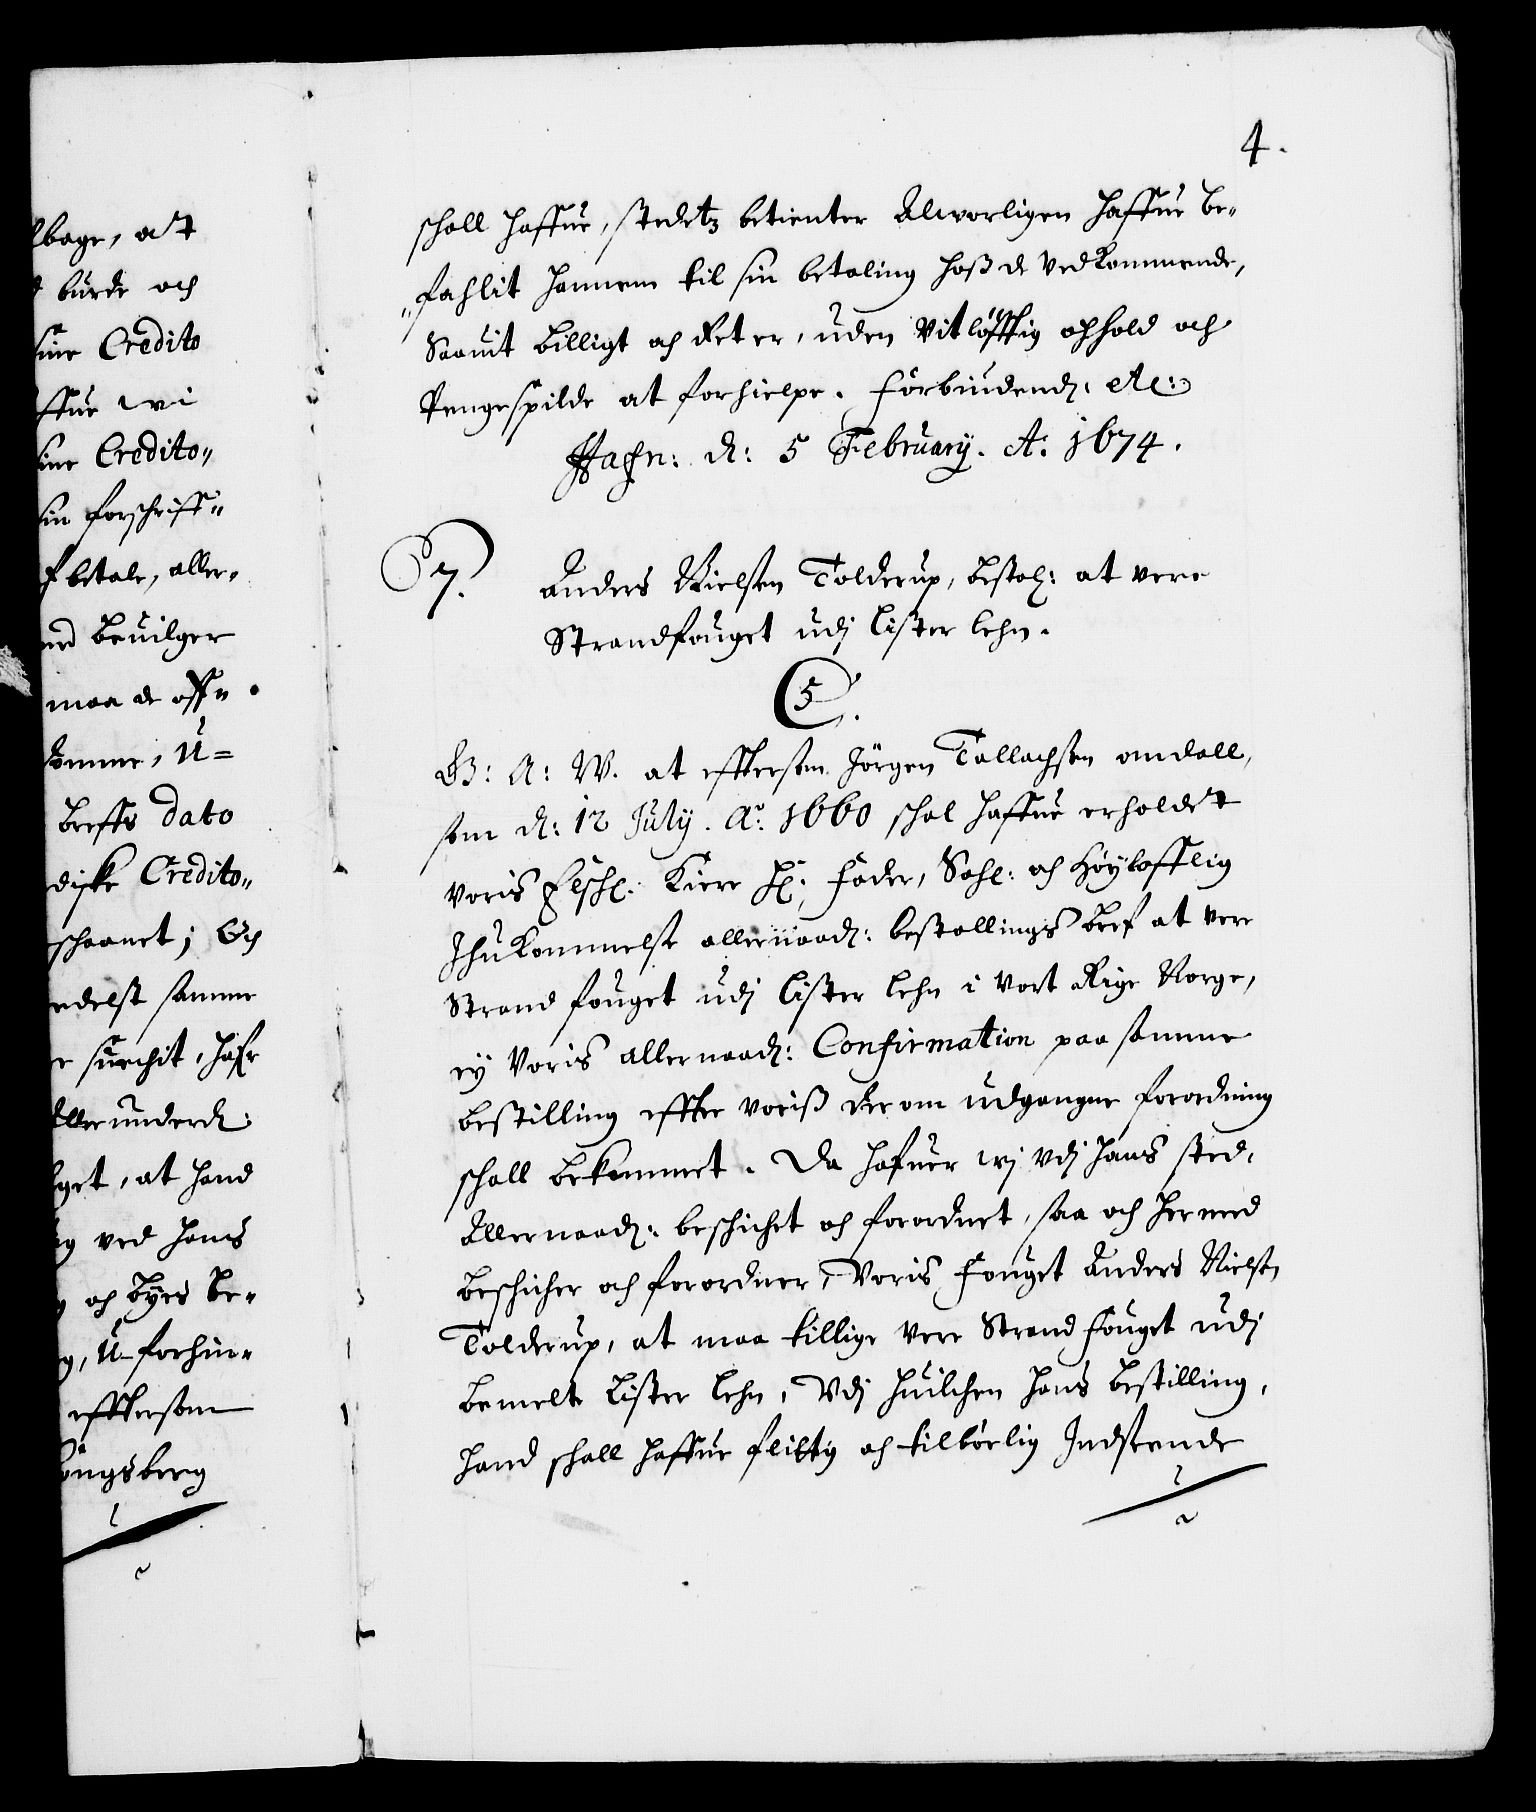 lbage, at
burde och
sine Credito
ffue wi
sine Credito„
sin forschriff„
betale, aller„
med beuilger
maa de off„
komme, U=
breffs dato
diske Credito„
schaanet; Och
edelst samme
surchit, hafr
Allerunderd:
lget, at hand
ved hans
och byes be„
U-forhin„
efftersom
Kongsberg
4.
schall haffue, stedetz betienter Alworligen haffue be„
„fahlit hannem til sin betaling hoß de Vedkommende,
Saauit billigt och Ret er, uden Vitløfftig ophold och
Pengespilde at forhielpe. Forbiudend: etc:
Hafn: d: 5 February. A: 1674.
7. Anders Nielsen Tolderup, bestal: at vere
Strandfouget udj Lister lehn.
C5.
G: A: W. at efftersom Jørgen Tallachsen omdall,
som d: 12 July. Ao: 1660 schal haffue erholdet
voris Elschl: Kiere Hl: Fader, Sahl: och Høylofflig
Ihukommelse allernaad: bestallings bref at vere
Strand fouget udj Lister lehn i Vort Rige Norge,
ey Voris allernaad: Confirmation paa samme
bestilling effter voriß der om udgangne forordning
schall bekommet. Da hafuer wj Vdj hans sted,
Allernaad: beschichet och forordnet, saa och hermed
beschicher och forordner, Voris Fouget Anders Nielsen
Tolderup, at maa tillige vere Strand Fouget udj
bemelte Lister Lehn, Vdj huilchen hans bestilling,
hand schall haffue flittig och tilbørlig Indseende